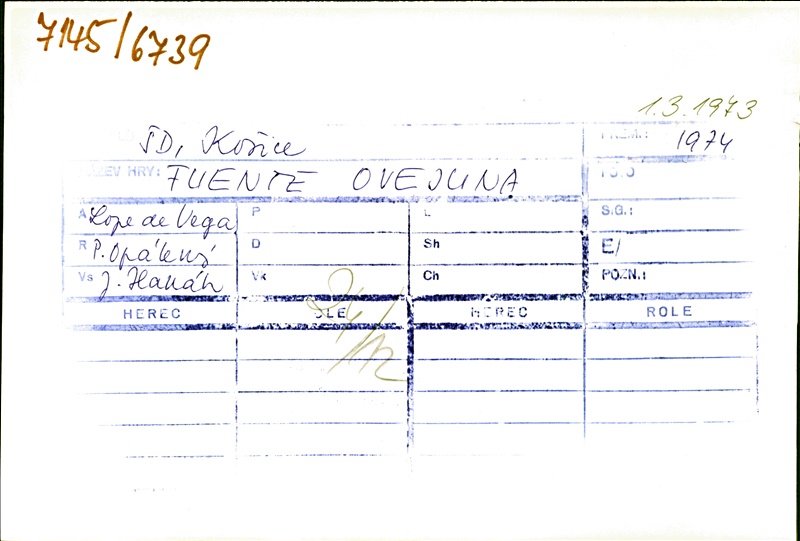 7145/6739
1.3.1973
ŠD, Košice
PREM.: 1974
NÁZEV HRY: FUENTE OVEJUNA
A Lope de Vega P L S.G.:
R P. Opálený D Sh E/
Vs J. Hanák Vk Ch POZN.:
HEREC ROLE HEREC ROLE